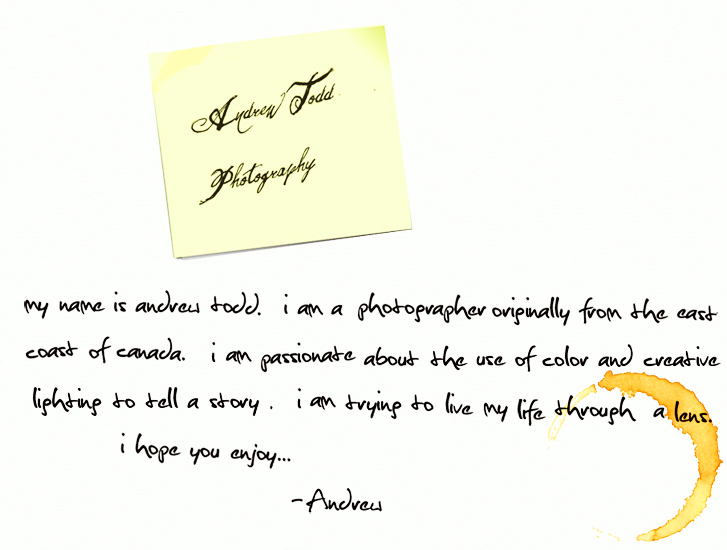 Andrew Todd
Photography
my name is andrew todd. i am a photographer originally from the east
coast of canada. i am passionate about the use of color and creative
lighting to tell a story. i am trying to live my life through a lens.
i hope you enjoy...
-Andrew